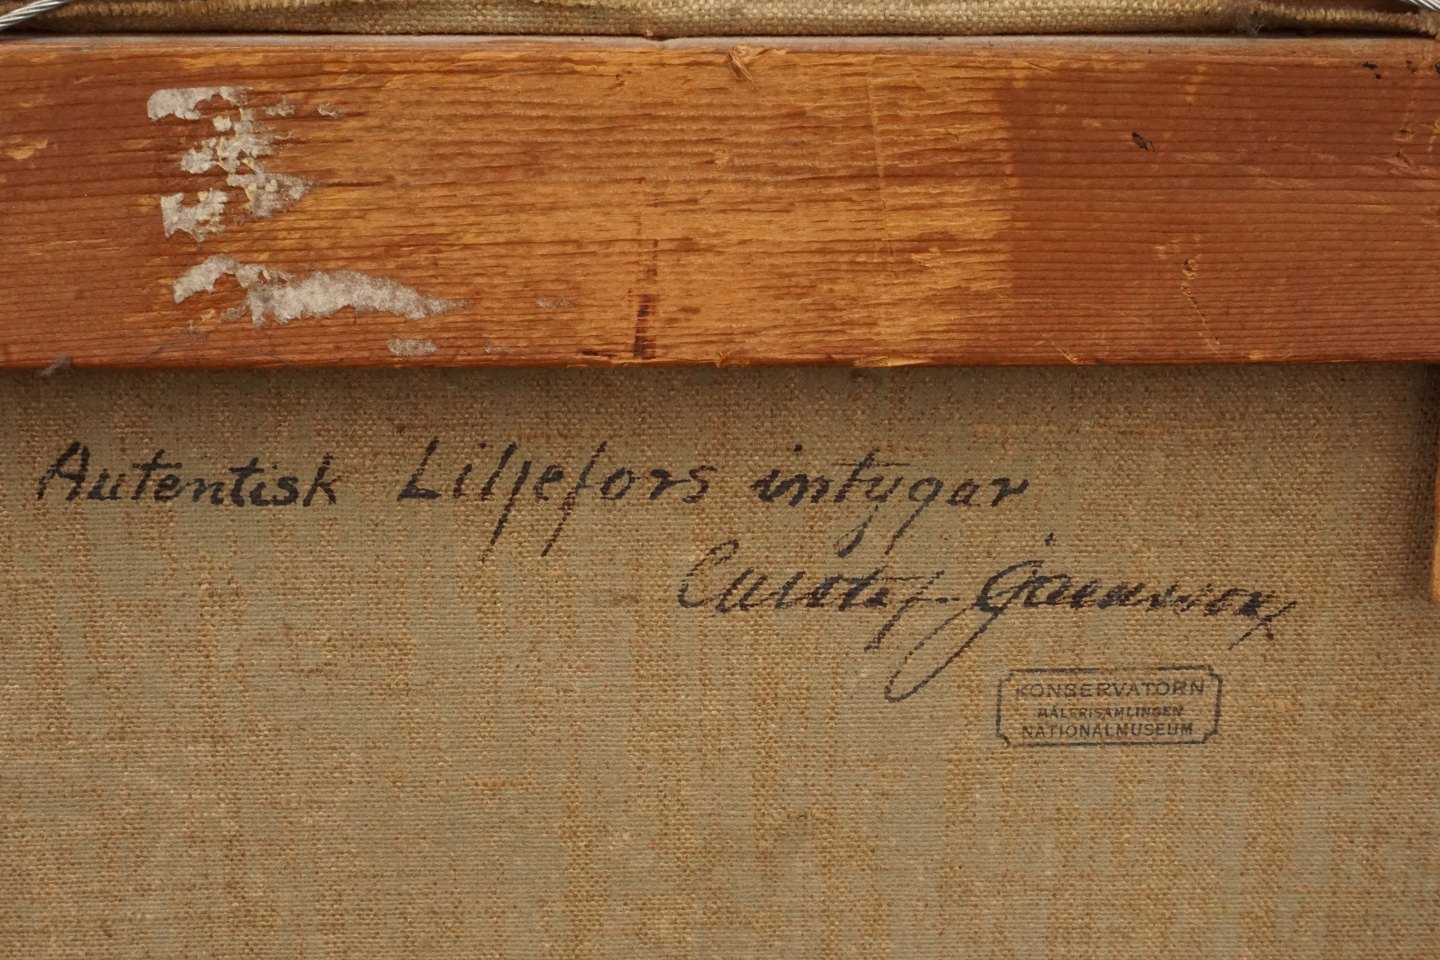 Autentisk Liljefors intygar
Gustaf Jaensson
KONSERVATORN
MÅLERISAMLINGEN
NATIONALMUSEUM